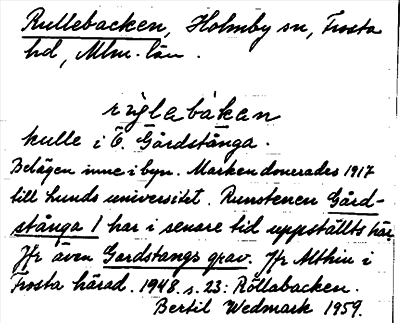 Rullebacken, Holmby sn, Frosta
hd, Mlm. län.
rùglabàkan
kulle i Ö. Gårdstånga.
Belägen inne i byn. Marken donerades 1917
till Lunds universitet. Runstenen Gård-
stånga 1 har i senare tid uppställts här.
Jfr även Gardstangs grav. Jfr Althin i
Frosta härad. 1948. s. 23: Röllabacken.
Bertil Wedmark 1959.